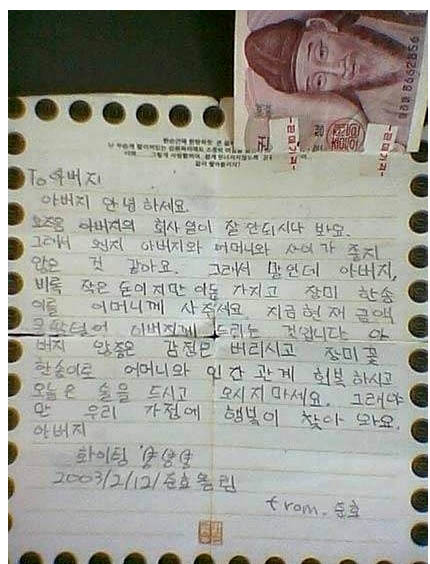 To 아버지
아버지 안녕하세요.
요즈음 아버지의 회사 일이 잘 안되시나 봐요.
그래서 왠지 아버지와 어머니와 사이가 좋지
않은 것 같아요. 그래서 말인데 아버지,
비록 작은 돈이지만 이돈 가지고 장미 한송
이를 어머니께 사주세요. 지금 현재 금액
털어 아버지께 드리는 것입니다 아
버지 않좋은 감정은 버리시고 장미꽃
한송이로 어머니와 인간 관계 회복 하시고
오늘은 술을 드시고 오시지 마세요. 그래야
만 우리 가정에 행복이 찾아 와요.
아버지
화이팅
2003/2/12/준호올림
from. 준호